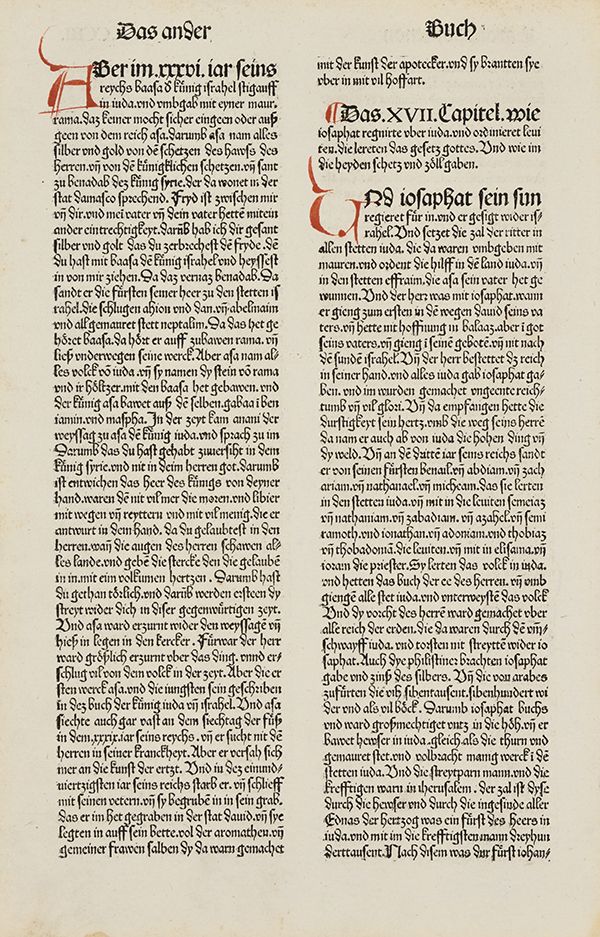 Das ander
Buch
Aber im .xxxvi. iar seins
reychs baasa d̕ künig israhel stigauff
in iuda. vnd vmbgab mit eyner maur.
rama. daz keiner mocht sicher eingeen oder auß
geen von dem reich asa. darumb asa nam alles
silber vnd gold von dē schetzen des hawß des
herren. vñ von dē küniglichen schetzen. vñ sant
zu benadab dez künig syrie. der da wonet in der
stat damasco sprechend. Fryd ist zwischen mir
vñ dir. vnd mei vater vñ dein vater hettē mitein
ander eintrechtigkeyt. darūb hab ich dir gesant
silber vnd golt das du zerbrechest dē fryde. dē
du hast mit baasa dē künig israhel vnd heyssest
in von mir ziehen. Da daz vernaz benadab. Da
sandt er die fürsten seiner heer zu den stetten is
rahel. die schlugen ahion vnd dan. vñ abelmaim
vnd allgemauret stett neptalim. Da das het ge
höret baasa. da hört er auff zubawen rama. vñ
ließ vnderwegen seine werck. Aber asa nam al-
les volck vō iuda. vñ sy namen dy stein vō rama
vnd ir höltzer. mit den baasa het gebawen. vnd
der künig asa bawet auß dē selben. gabaa i ben
iamin. vnd maspha. In der zeyt kam anani der
weyssag zu asa dē künig iuda. vnd sprach zu im
Darumb das du hast gehabt zuuersiht in dem
künig syrie. vnd nit in deim herren got. darumb
ist entwichen das heer des künigs von deyner
hand. waren dē nit vil mer die moren. vnd libier
mit wegen vñ reyttern vnd mit vil menig. die er
antwurt in dem hand. da du gelaubtest in den
herren. wañ die augen des herren schawen al-
les lande. vnd gebē die stercke den die gelauben
in in. mit ein volkumen hertzen. Darumb hast
du gethan törlich. vnd darūb werden ersteen dy
streyt wider dich in diser gegenwürtigen zeyt.
Vnd asa ward erzurnt wider den weyssagē vñ
hieß in legen in den kercker. Fürwar der herr
ward größlich erzurnt vber das ding. vnnd er-
schlug vil von dem volck in der zeyt. Aber die er
sten werck asa. vnd die iungsten sein geschriben
in dez buch der künig iuda vñ israhel. Vnd asa
siechte auch gar vast an dem siechtag der füß
in dem. xxxix. iar seins reychs. vñ er sucht nit den
herren in seiner kranckheyt. Aber er versah sich
mer an die kunst der ertzt. Vnd in dez einund-
viertzigsten iar seins reichs starb er. vñ schlieff
mit seinen vetern. vñ sy begrubē in in sein grab.
das er im het gegraben in der stat dauid. vñ sye
legten in auff sein bette. vol der aromathen. vñ
gemeiner frawen salben dy da warn gemachet
mit der kunst der apotecker. vnd sy brantten sye
vber in mit vil hoffart.
Das .XVII. Capitel. wie
iosaphat regnirte vber iuda. vnd ordinieret leui
ten. die lereten das gesetz gottes. Vnd wie im
die heyden schetz vnd zöll gaben.
Und iosaphat sein sun
regieret für in. vnd er gesigt wider is-
rahel. Vnd setzet die zal der ritter in
allen stetten iuda. die da waren vmbgeben mit
mauren. vnd ordent die hilff in dē land iuda. vñ
in den stetten effraim. die asa sein vater het ge
wunnen. Vnd der herr was mit iosaphat. wann
er gieng zum ersten in dē wegen dauid seins va
ters. vñ hette nit hoffnung in balaaz. aber i got
seins vaters. vñ gieng i seinē gebotē. vñ nit nach
dē sundē israhel. Vñ der herr bestettet dz reich
in seiner hand. vnd alles iuda gab iosaphat ga-
ben. vnd im wurden gemachet vngeente reich-
tumb vñ vil glori. Vñ da empfangen hette die
durstigkeyt sein hertz. vmb die weg seins herrē
da nam er auch ab von iuda die hohen ding vñ
dy weld. Vñ an dē drittē iar seins reichs sandt
er von seinen fürsten benail. vñ abdiam. vñ zach
ariam. vñ nathanael. vñ micheam. das sie lerten
in den stetten iuda. vñ mit in die leuiten semeiaz
vñ nathaniam. vñ zabadiam. vñ azahel. vñ semi
ramoth. vnd ionathan. vñ adoniam. vnd thobiaz
vñ thobadoniā. die leuiten. vñ mit in elisama. vñ
ioram die priester. Sy lerten das volck in iuda.
vnd hetten das buch der ee des herren. vñ vmb
giengē alle stet iuda. vnd vnterweystē das volck
Vnd dy vorcht des herrē ward gemachet vber
alle reich der erden. die da waren durch dē vm̄-
schwayff iuda. vnd torsten nit streyttē wider io
saphat. Auch dye philistiner brachten iosaphat
gabe vnd zinß des silbers. Vñ die von arabes
zufürten die vih sibentausent. sibenhundert wi
der vnd als vil böck. Darumb iosaphat buchs
vnd ward großmechtiget vntz in die höh. vñ er
bawet hewser in iuda. gleich als die thurn vnd
gemauret stet. vnd volbracht manig werck i dē
stetten iuda. Vnd die streytparn mann. vnd die
krefftigen warn in iherusalem. der zal ist dyse
durch die hewser vnd durch die ingesinde aller
Ednas der hertzog was ein fürst des heers in
iuda. vnd mit im die krefftigsten mann dreyhun
derttausent. Nach disem was der fürst iohan-